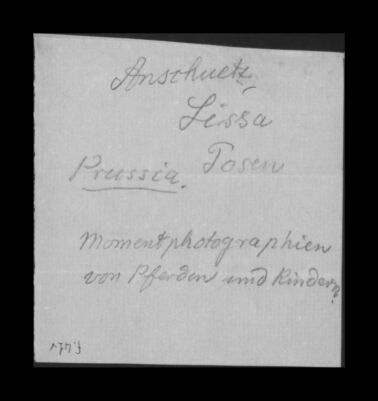 Anschuetz
Lissa
Posen
Prussia.
Momentphotographien
von Pferden und Rindern.